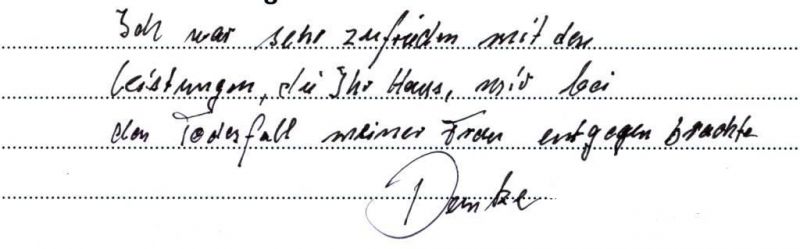 Ich war sehr zufrieden mit den
Leistungen, die Ihr Haus, mir bei
den Todesfall meiner Frau entgegen brachte
Danke